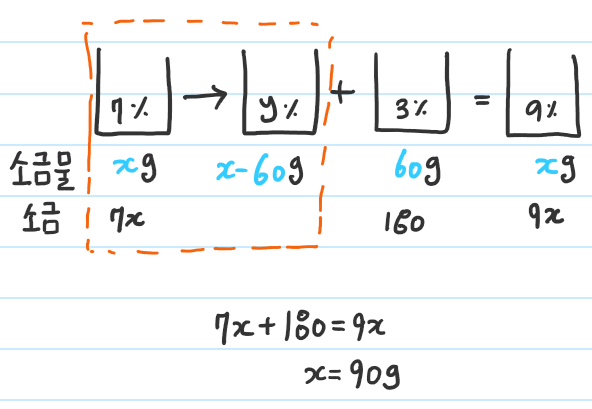 7% → y% + 3% = 9%
소금물 xg x-60g 60g xg
소금 7x 180 9x
7x+180=9x
x=90g